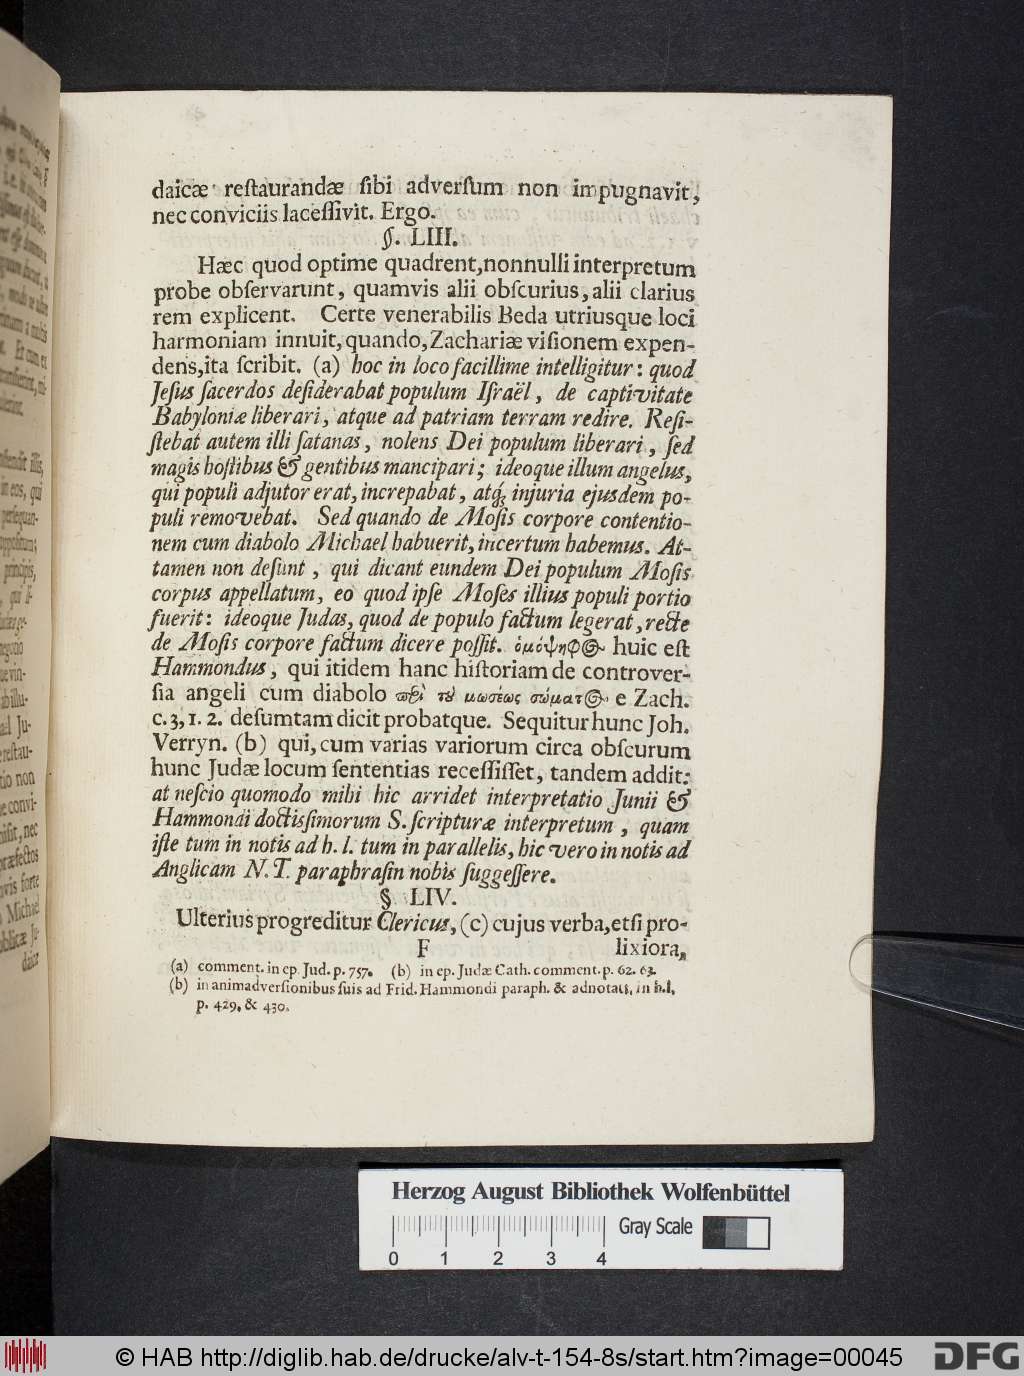 daicæ reſtaurandæ ſibi adverſum non impugnavit,
nec conviciis laceſſivit. Ergo.
§. LIII.
Hæc quod optime quadrent, nonnulli interpretum
probe obſervarunt, quamvis alii obſcurius, alii clarius
rem explicent. Certe venerabilis Beda utriusque loci
harmoniam innuit, quando, Zachariæ viſionem expen-
dens, ita ſcribit. (a) hoc in loco facillime intelligitur: quod
Jeſus ſacerdos deſiderabat populum Iſraël, de captivitate
Babyloniæ liberari, atque ad patriam terram redire. Reſi-
ſtebat autem illi ſatanas, nolens Dei populum liberari, ſed
magis hoſtibus & gentibus mancipari; ideoque illum angelus,
qui populi adjutor erat, increpabat, atq; injuria ejusdem po-
puli removebat. Sed quando de Moſis corpore contentio-
nem cum diabolo Michael habuerit, incertum habemus. At-
tamen non deſunt, qui dicant eundem Dei populum Moſis
corpus appellatum, eo quod ipſe Moſes illius populi portio
fuerit: ideoque Judas, quod de populo factum legerat, recte
de Moſis corpore factum dicere poſſit. ὁμόψηφος huic eſt
Hammondus, qui itidem hanc hiſtoriam de controver-
ſia angeli cum diabolo περὶ τοῦ μωσέως σώματος e Zach.
c. 3, 1. 2. deſumtam dicit probatque. Sequitur hunc Joh.
Verryn. (b) qui, cum varias variorum circa obſcurum
hunc Judæ locum ſententias receſſiſſet, tandem addit:
at neſcio quomodo mihi hic arridet interpretatio Junii &
Hammondi doctisſimorum S. ſcripturæ interpretum, quam
iſte tum in notis ad h. l. tum in parallelis, hic vero in notis ad
Anglicam N. T. paraphraſin nobis ſuggeſſere.
§ LIV.
Ulterius progreditur Clericus, (c) cujus verba, etſi pro-
F lixiora,
(a) comment. in ep. Jud. p. 757. (b) in ep. Judæ Cath. comment. p. 62. 63.
(b) in animadverſionibus ſuis ad Frid. Hammondi paraph. & adnotat. in h. l,
p. 429, & 430.
Herzog August Bibliothek Wolfenbüttel
Gray Scale
0 1 2 3 4
© HAB http://diglib.hab.de/drucke/alv-t-154-8s/start.htm?image=00045
DFG